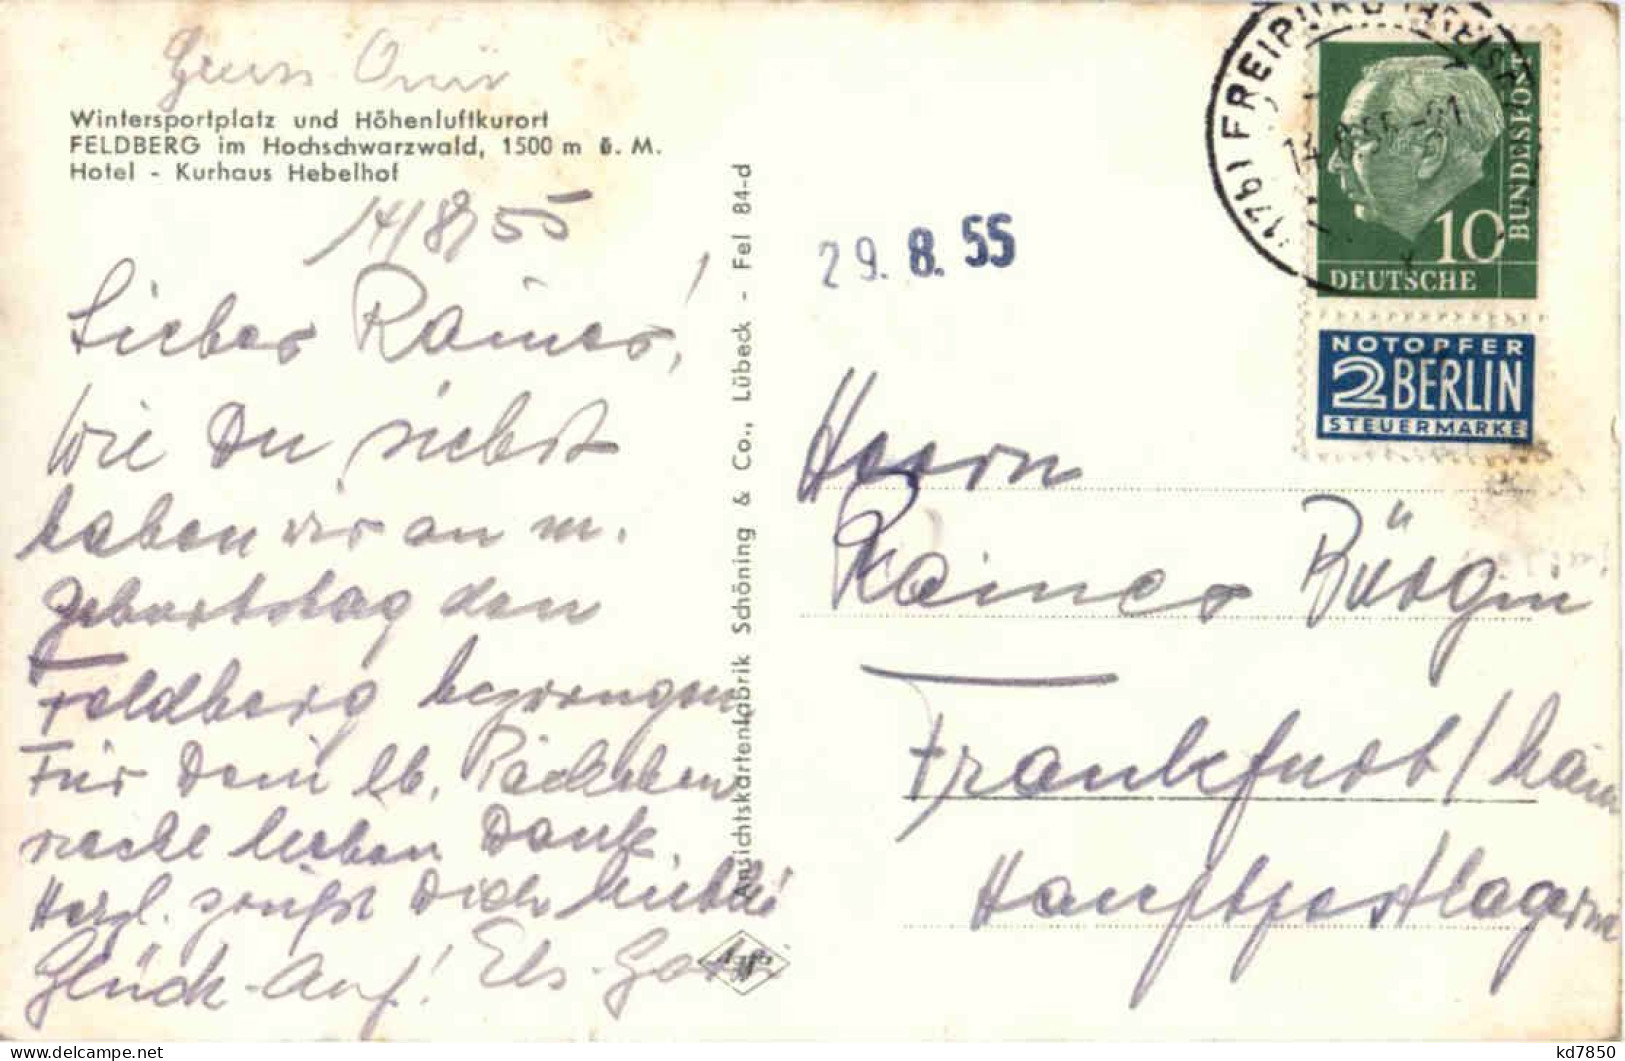 Gruss Omi
Wintersportplatz und Höhenluftkurort
FELDBERG im Hochschwarzwald, 1500 m ü. M.
Hotel - Kurhaus Hebelhof
14/8/55
Lieber Rainer!
Wie Du siehst
haben wir an m.
Geburtstag den
Feldberg bezwungen
Für Dein lb. Päckchen
recht lieben Dank.
Herzl. grüßt Dich Mutti
Glück-Auf! Els.
Ansichtskartenfabrik Schöning & Co., Lübeck - Fel 84-d
29. 8. 55
(17b) FREIBURG (BREISG
14.8.55
BUNDESPOST
10
DEUTSCHE
NOTOPFER
2 BERLIN
STEUERMARKE
Herrn
Rainer Bürgin
Frankfurt/Main
Hauptpostlagernd
Agfa
kd7850